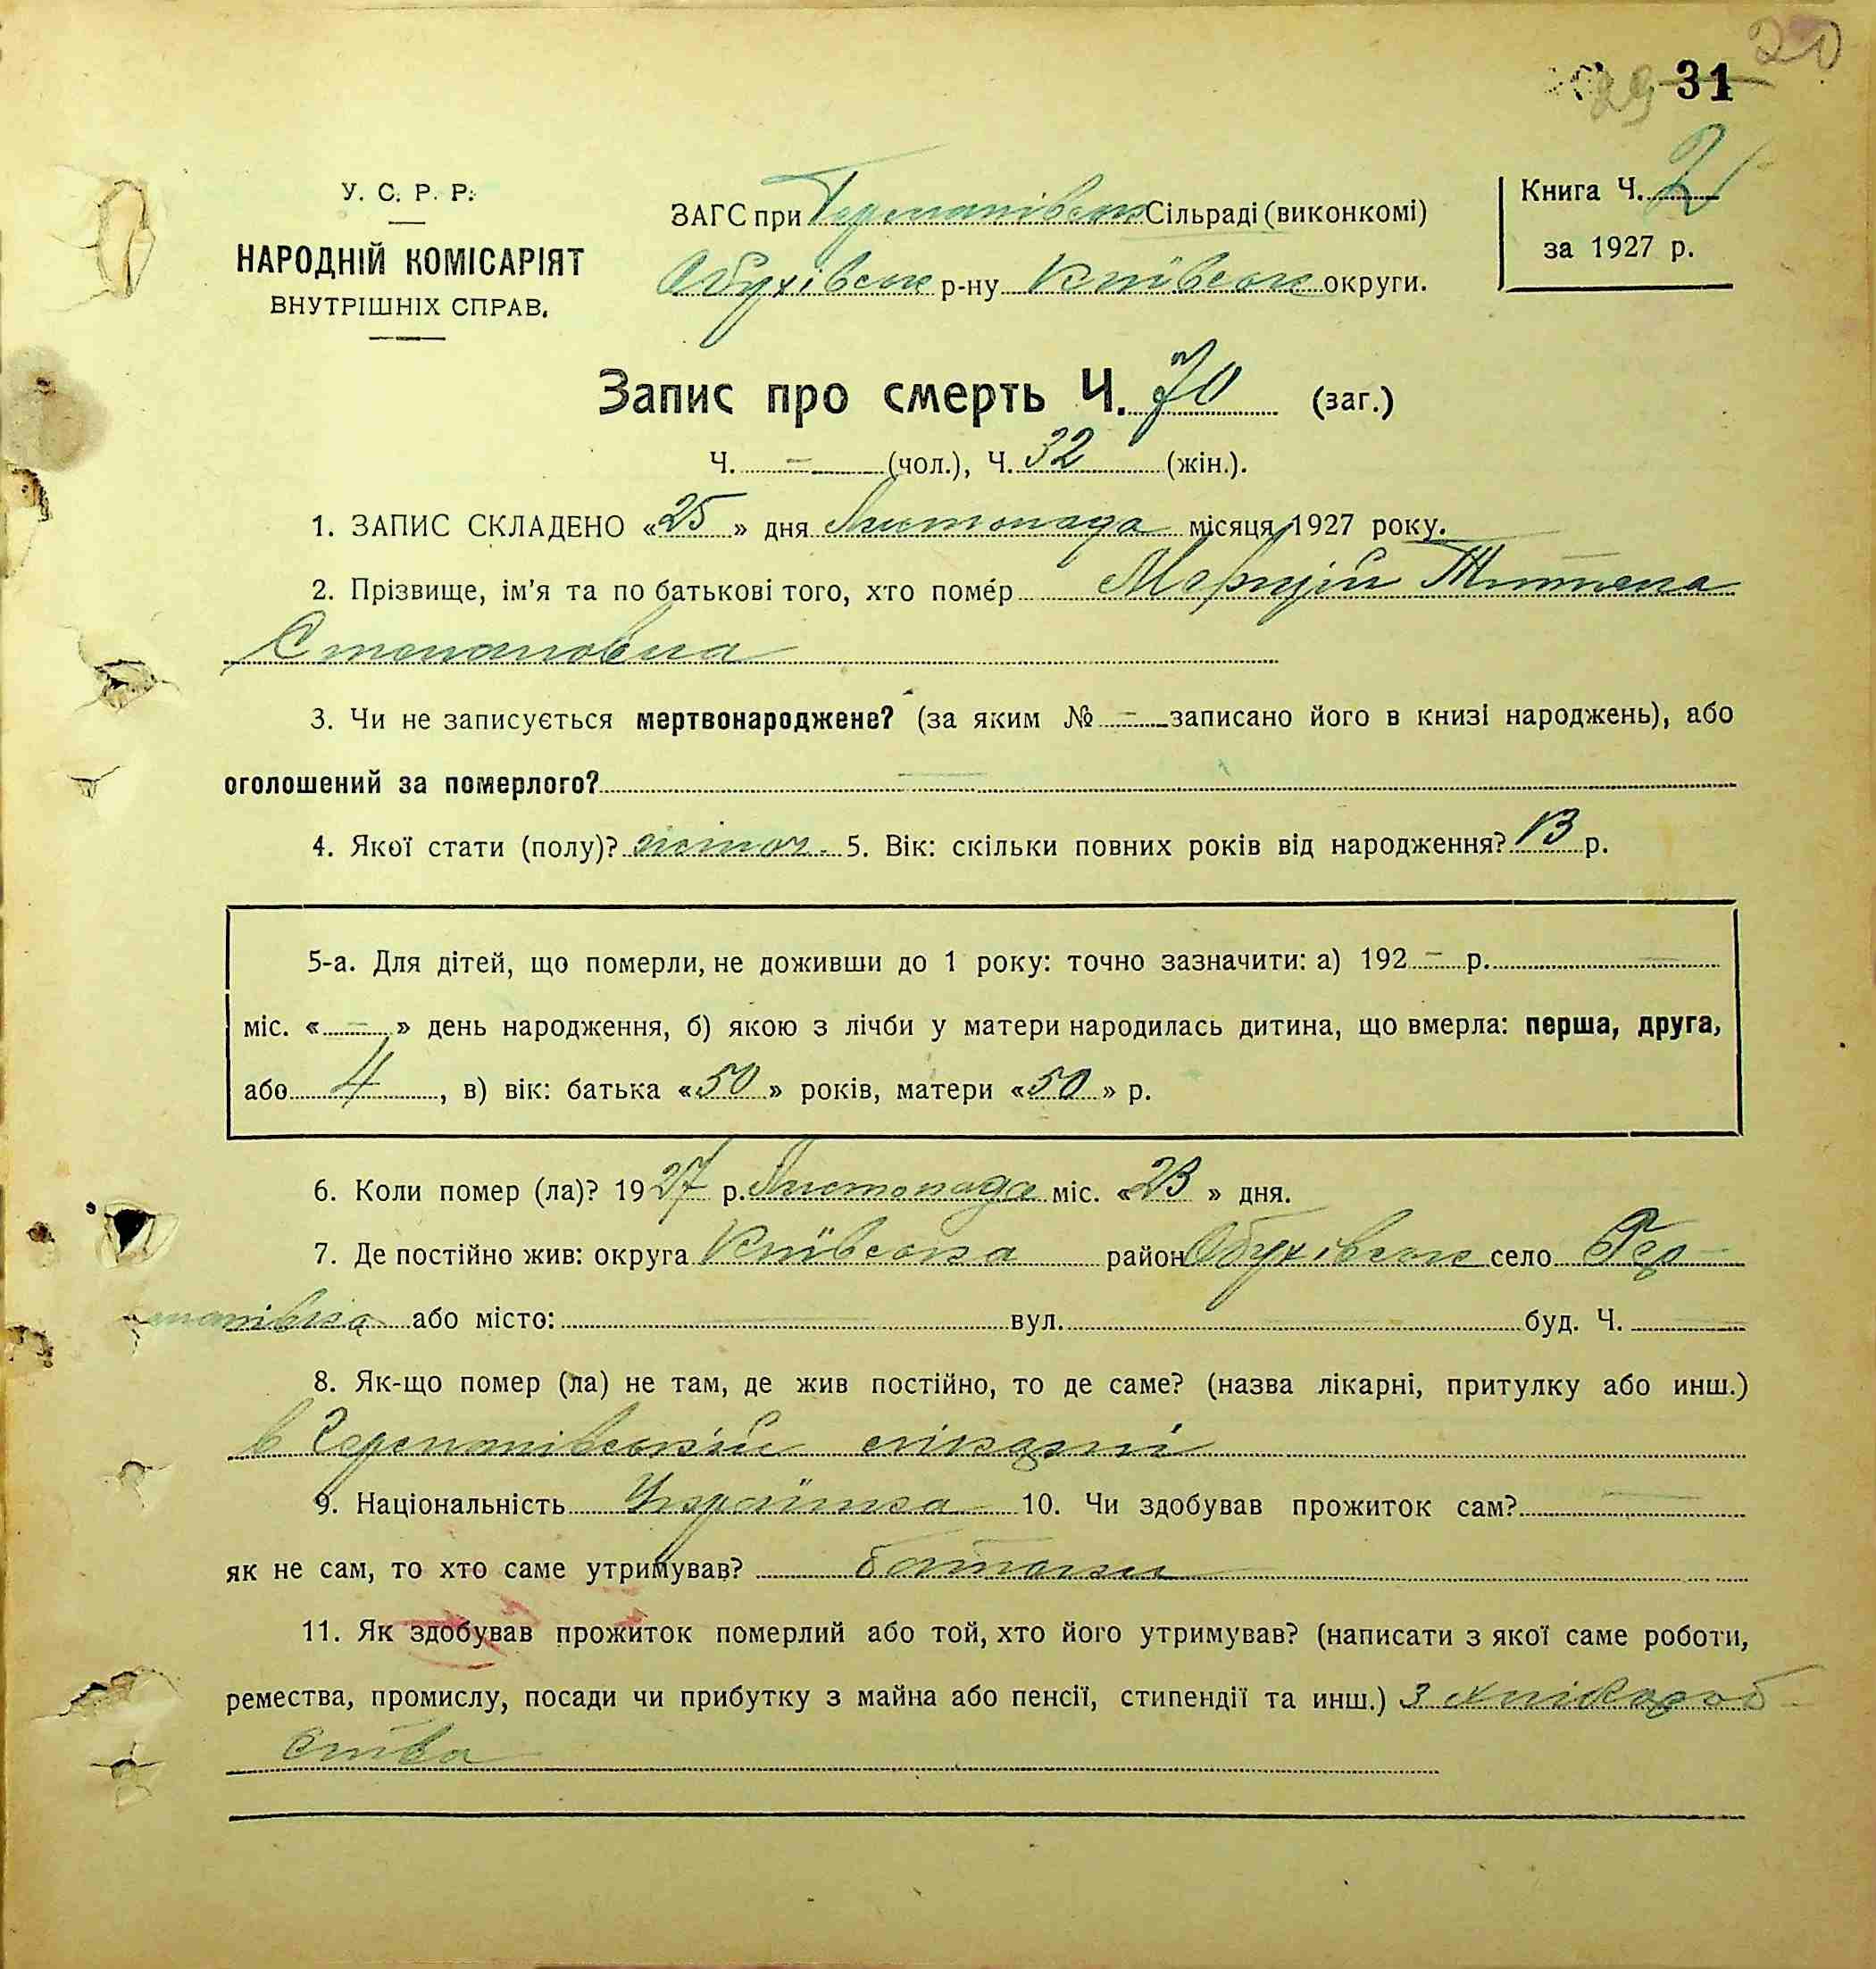 20
29 31
У. С. Р. Р.
НАРОДНІЙ КОМІСАРІЯТ
ВНУТРІШНІХ СПРАВ.
ЗАГС при Германівськ Сільраді (виконкомі)
Обухівськ р-ну Київськ округи.
Книга Ч. 2
за 1927 р.
Запис про смерть Ч. 70 (заг.)
Ч. - (чол.), Ч. 32 (жін.).
1. ЗАПИС СКЛАДЕНО «25» дня Листопада місяця 1927 року.
2. Прізвище, ім'я та по батькові того, хто помер
Степановна
3. Чи не записується мертвонароджене? (за яким № - записано його в книзі народжень), або
оголошений за померлого? —
4. Якої стати (полу)? жіноч. 5. Вік: скільки повних років від народження? 13 р.
5-а. Для дітей, що померли, не доживши до 1 року: точно зазначити: а) 192 - р. —
міс. « - » день народження, б) якою з лічби у матери народилась дитина, що вмерла: перша, друга,
або 4, в) вік: батька «50» років, матери «50» р.
6. Коли помер (ла)? 1927 р. Листопада міс. «23» дня.
7. Де постійно жив: округа Київська район Обухівськ село Гер-
манівка або місто: — вул. — буд. Ч. —
8. Як-що помер (ла) не там, де жив постійно, то де саме? (назва лікарні, притулку або инш.)
в Германівській лікарні
9. Національність Українка 10. Чи здобував прожиток сам? —
як не сам, то хто саме утримував? батьки
11. Як здобував прожиток померлий або той, хто його утримував? (написати з якої саме роботи,
ремества, промислу, посади чи прибутку з майна або пенсії, стипендії та инш.) З хліброб-
ства